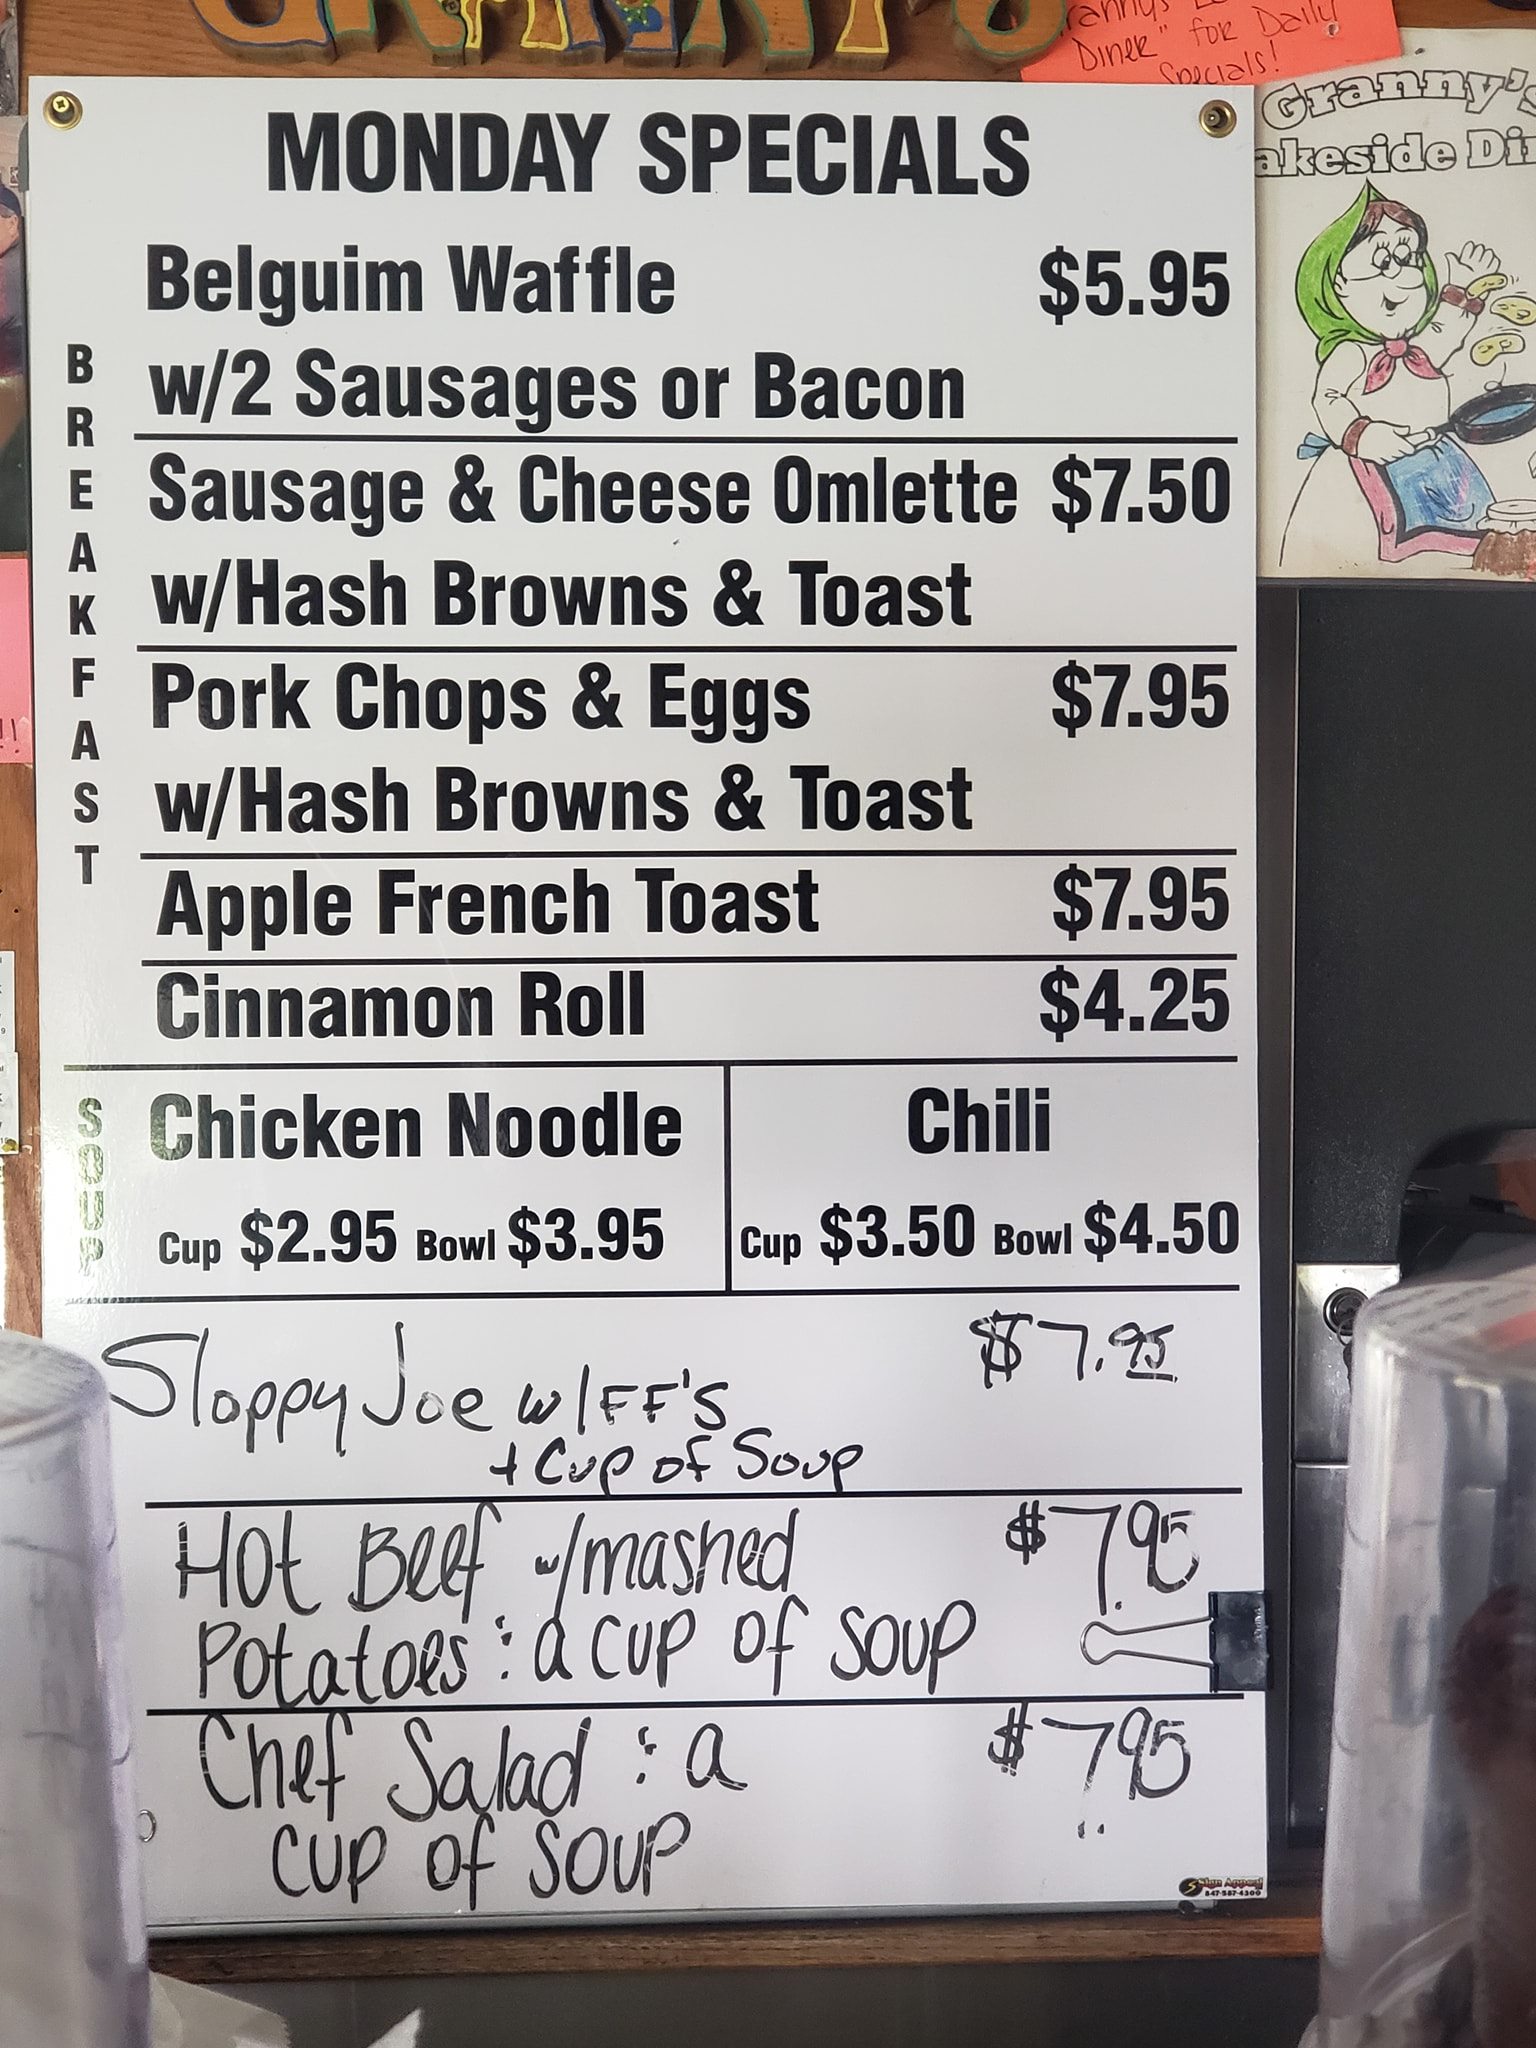 GRANNY'S
Diner" for Daily
Specials!
Granny's
akeside Di
MONDAY SPECIALS
BREAKFAST
Belguim Waffle $5.95
w/2 Sausages or Bacon
Sausage & Cheese Omlette $7.50
w/Hash Browns & Toast
Pork Chops & Eggs $7.95
w/Hash Browns & Toast
Apple French Toast $7.95
Cinnamon Roll $4.25
SOUP
Chicken Noodle
Cup $2.95 Bowl $3.95
Chili
Cup $3.50 Bowl $4.50
Sloppy Joe w/FF's $7.95
+ Cup of Soup
Hot Beef w/mashed $7.95
Potatoes : a cup of soup
Chef Salad : a $7.95
cup of soup
Sign Appeal
847-587-4300